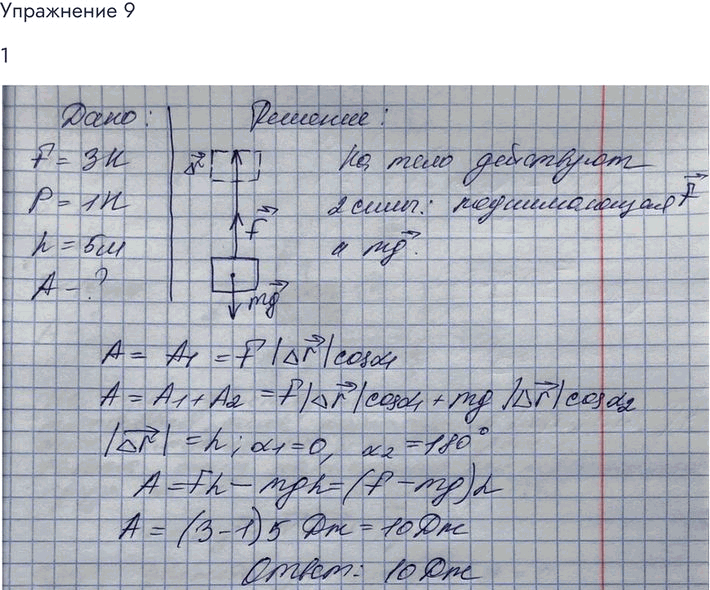 Упражнение 9
1
Дано: Решение:
F = 3Н На тело действуют
P = 1Н 2 силы: поднимающая F⃗
h = 5м и mg⃗.
A - ?
Δr⃗
F⃗
mg⃗
A = A₁ = F |Δr⃗| cosα₁
A = A₁ + A₂ = F |Δr⃗| cosα₁ + mg |Δr⃗| cosα₂
|Δr⃗| = h; α₁ = 0, α₂ = 180°
A = Fh - mgh = (F - mg)h
A = (3 - 1) 5 Дж = 10 Дж
Ответ: 10 Дж